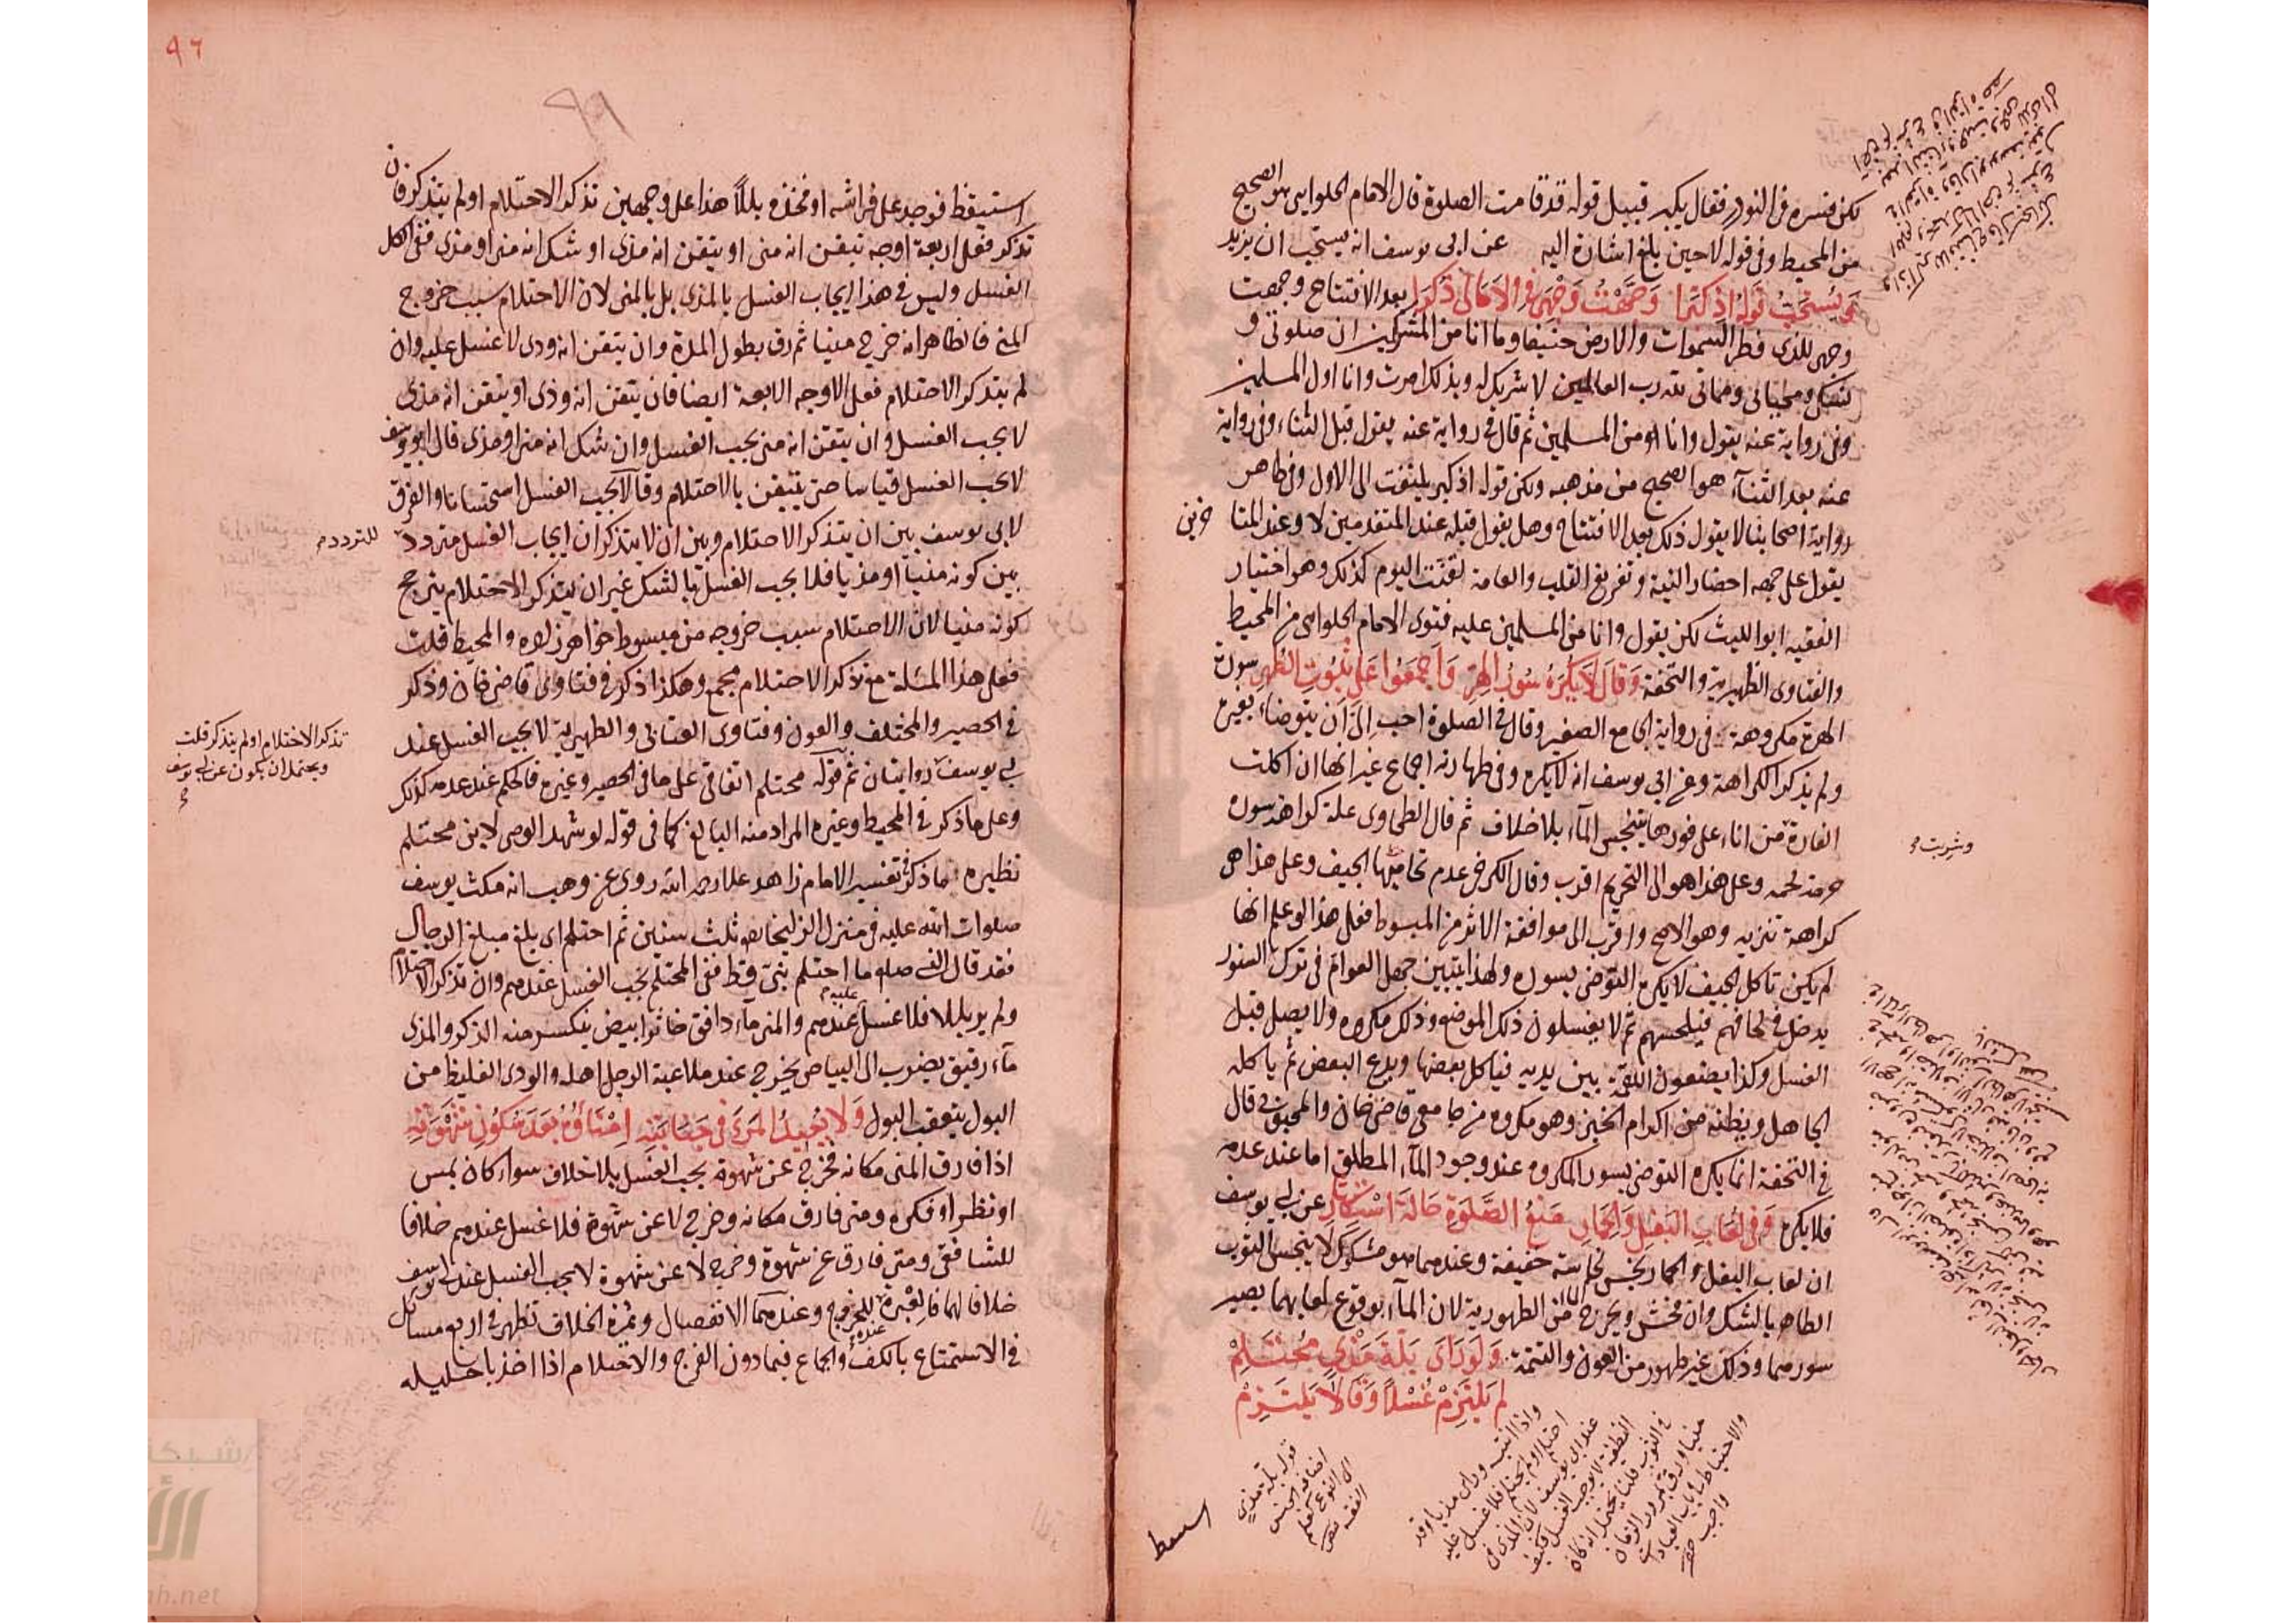 لكن فسره فى النوادر فقال يكبر قبيل قوله قد قامت الصلوة قال الامام الحلوايى هو الصحيح
من المحيط وفى قوله لا حين بلغ اشارة اليه عن ابى يوسف انه يستحب ان يزيد
ويستحب قوله اذ كبرا وجهت وجهى والامامى ذكرا بعد الافتتاح وجهت
وجهى للذى فطر السموات والارض حنيفا وما انا من المشركين ان صلوتى و
نسكى ومحياى ومماتى لله رب العالمين لا شريك له وبذلك امرت وانا اول المسلمين
وفى رواية عنه يقول وانا من المسلمين ثم قال فى رواية عنه يقول قبل الثناء وفى رواية
عنه بعد الثناء هو الصحيح من مذهبه ولكن قوله اذ كبر يلتفت الى الاول وفى ظاهر
رواية اصحابنا لا يقول ذلك بعد الافتتاح وهل يقول قبله عند المتقدمين لا وعند المتا خرين
يقول على جهة احضار النية وتفريغ القلب والعامة لقنت اليوم كذلك وهو اختيار
الفقيه ابو الليث لكن يقول وانا من المسلمين عليه فتوى الامام الحلوايى من المحيط
والفتاوى الظهيرية والتحفة وقال لا يكره سؤر الهر واجمعوا على ثبوت الطهر سورة
الهرة مكروهة فى رواية الجامع الصغير وقال فى الصلوة احب الى ان يتوضاء بغيره
ولم يذكر الكراهة وعن ابى يوسف انه لا يكره وفى طهارته اجماع غير انها ان اكلت
الفارة من اناء على فورها يتنجس الماء بلا خلاف ثم قال الطحاوى علة كراهة سوره
وشربت
حرمة لحمه وعلى هذا هو الى التحريم اقرب وقال الكرخى عدم تحاميها الجيف وعلى هذا هى
كراهة تنزيه وهو الاصح واقرب الى موافقة الاثر من المبسوط فعلى هذا لو علم انها
لم يكن تاكل الجيف لا يكره التوضى بسوره ولهذا يتبين جهل العوام فى ترك السنور
يدخل فى لحافهم فيلحسهم ثم لا يغسلون ذلك الموضع وذلك مكروه ولا يصلى قبل
الغسل وكذا يضعون اللقمة بين يديه فياكل بعضها ويدع البعض ثم ياكله
الجاهل ويظنه من اكرام الخبز وهو مكروه من جامعى قاضى خان والمحبوبى قال
فى التحفة انما يكره التوضى بسور المكروه عند وجود الماء المطلق اما عند عدمه
فلا يكره وفى لعاب البغل والحمار منع الصلوة حالة استكثار عن ابى يوسف
ان لعاب البغل والحمار نجس نجاسة خفيفة وعندهما هو مشكل لا ينجس الثوب
الطاهر بالشك وان فحش ويخرج الماء من الطهورية لان الماء بوقوع لعابهما يصير
سورهما وذلك غير طهور من العون والتتمة ولو راى بلة مذى محتلم
لم يلتزم غسلا وقالا يلتزم
قوله بلة مذى
اضافة الجنس
الى النوع كعلم
الفقه
واذا انتبه وراى مذيا وقد
احتلم او لم يحتلم فلا غسل عليه
عند ابى يوسف لان المذى فى
اليقظة لا يوجب الغسل فكيف
فى النوم قلنا يحتمل انه كان
منيا ورق بمرور الزمان
والاحتياط فى باب العبادات
واجب
استيقظ
٩٦
استيقظ فوجد على فراشه او فخذه بللا هذا على وجهين تذكر الاحتلام او لم يتذكر فان
تذكر فعلى اربعة اوجه تيقن انه منى او يتقن انه مذى او شك انه منى او مذى ففى الكل
الغسل وليس فى هذا ايجاب الغسل بالمذى بل بالمنى لان الاحتلام سبب خروج
المنى فالظاهر انه خرج منيا ثم رق بطول المدة وان يتقن انه ودى لا غسل عليه وان
لم يتذكر الاحتلام فعلى الاوجه الاربعة ايضا فان يتقن انه ودى او يتقن انه مذى
لا يجب الغسل وان يتقن انه منى يجب الغسل وان شك انه منى او مذى قال ابو يوسف
لا يجب الغسل قياسا حتى يتيقن بالاحتلام وقالا يجب الغسل استحسانا والفرق
لابى يوسف بين ان يتذكر الاحتلام وبين ان لا يتذكر ان ايجاب الغسل متردد
للتردد
بين كونه منيا او مذيا فلا يجب الغسل بالشك غير ان بتذكر الاحتلام يترجح
كونه منيا لان الاحتلام سبب خروجه من مبسوط خواهر زاده والمحيط قلت
فعلى هذا المسئلة مع تذكر الاحتلام مجمع وهكذا ذكر فى فتاوى قاضى خان وذكر
فى الحصير والمختلف والعون وفتاوى العتابى والظهيرية لا يجب الغسل عند
تذكر الاحتلام او لم يتذكر قلت
ويحتمل ان يكون عن ابى يوسف
ابى يوسف روايتان ثم قوله محتلم اتفاقى على ما فى الحصير وغيره فالحكم عند عدمه كذلك
وعلى ما ذكر فى المحيط وغيره المراد منه البالغ كما فى قوله لو شهد الوصى لابن محتلم
نظيره ما ذكر فى تفسير الامام زاهد علاء رحمه الله روى عن وهب انه مكث يوسف
صلوات الله عليه فى منزل الزليخا ثلث سنين ثم احتلم اى بلغ مبلغ الرجال
فقد قال النبى صلعم ما احتلم نبى قط ففى المحتلم يجب الغسل عندهم وان تذكر الاحتلام
ولم ير بللا فلا غسل عليه عندهم والمنى ماء دافق خاثر ابيض ينكسر منه الذكر والمذى
ماء رقيق يضرب الى البياض يخرج عند ملاعبة الرجل اهله والودى الغليظ من
البول يتعقب البول ولا يعيد المرء فى جنابته امناؤه بعد سكون شهوته
اذا فارق المنى مكانه فخرج عن شهوة يجب الغسل بلا خلاف سواء كان بمس
او نظر او فكرة ومتى فارق مكانه وخرج لا عن شهوة فلا غسل عندهم خلافا
للشافعى ومتى فارق عن شهوة وخرج لا عن شهوة لا يجب الغسل عند ابى يوسف
خلافا لهما فالعبرة عنده للخروج وعندهما الانفصال وثمرة الخلاف تظهر فى اربع مسائل
فى الاستمتاع بالكف والجماع فيما دون الفرج والاحتلام اذا اخذ باحليله